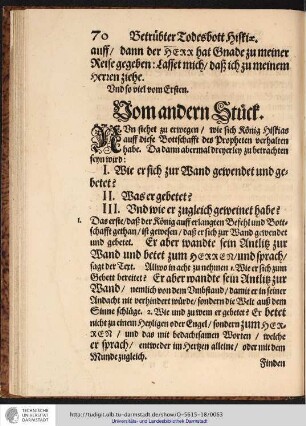 70 Betrübter Todesbott Hiskiæ.
auff / dann der HERR hat Gnade zu meiner
Reise gegeben: Lasset mich / daß ich zu meinem
Herren ziehe.
Und so viel vom Ersten.
Vom andern Stück.
NUn stehet zu erwegen / wie sich König Hiskias
auff diese Bottschafft des Propheten verhalten
habe. Da dann abermal dreyerley zu betrachten
seyn wird:
I. Wie er sich zur Wand gewendet und ge-
betet?
II. Was er gebetet?
III. Und wie er zugleich geweinet habe?
1. Das erste / daß der König auff erlangten Befehl und Bott-
schafft gethan / ist gewesen / daß er sich zur Wand gewendet
und gebetet. Er aber wandte sein Antlitz zur
Wand und betet zum HERREN / und sprach /
sagt der Text. Allwo in acht zu nehmen 1. Wie er sich zum
Gebett bereitet? Er aber wandte sein Antlitz zur
Wand / nemlich von dem Umbstand / damit er in seiner
Andacht nit verhindert würde / sondern die Welt auß dem
Sinne schlüge. 2. Wie und zu wem er gebetet? Er betet
nicht zu einem Heyligen oder Engel / sondern zum HER-
REN / und das mit bedachtsamen Worten / welche
er sprach / entweder im Hertzen alleine / oder mit dem
Munde zugleich.
Finden
TECHNISCHE
UNIVERSITÄT
DARMSTADT
http://tudigit.ulb.tu-darmstadt.de/show/G-5615-18/0063
Universitäts- und Landesbibliothek Darmstadt